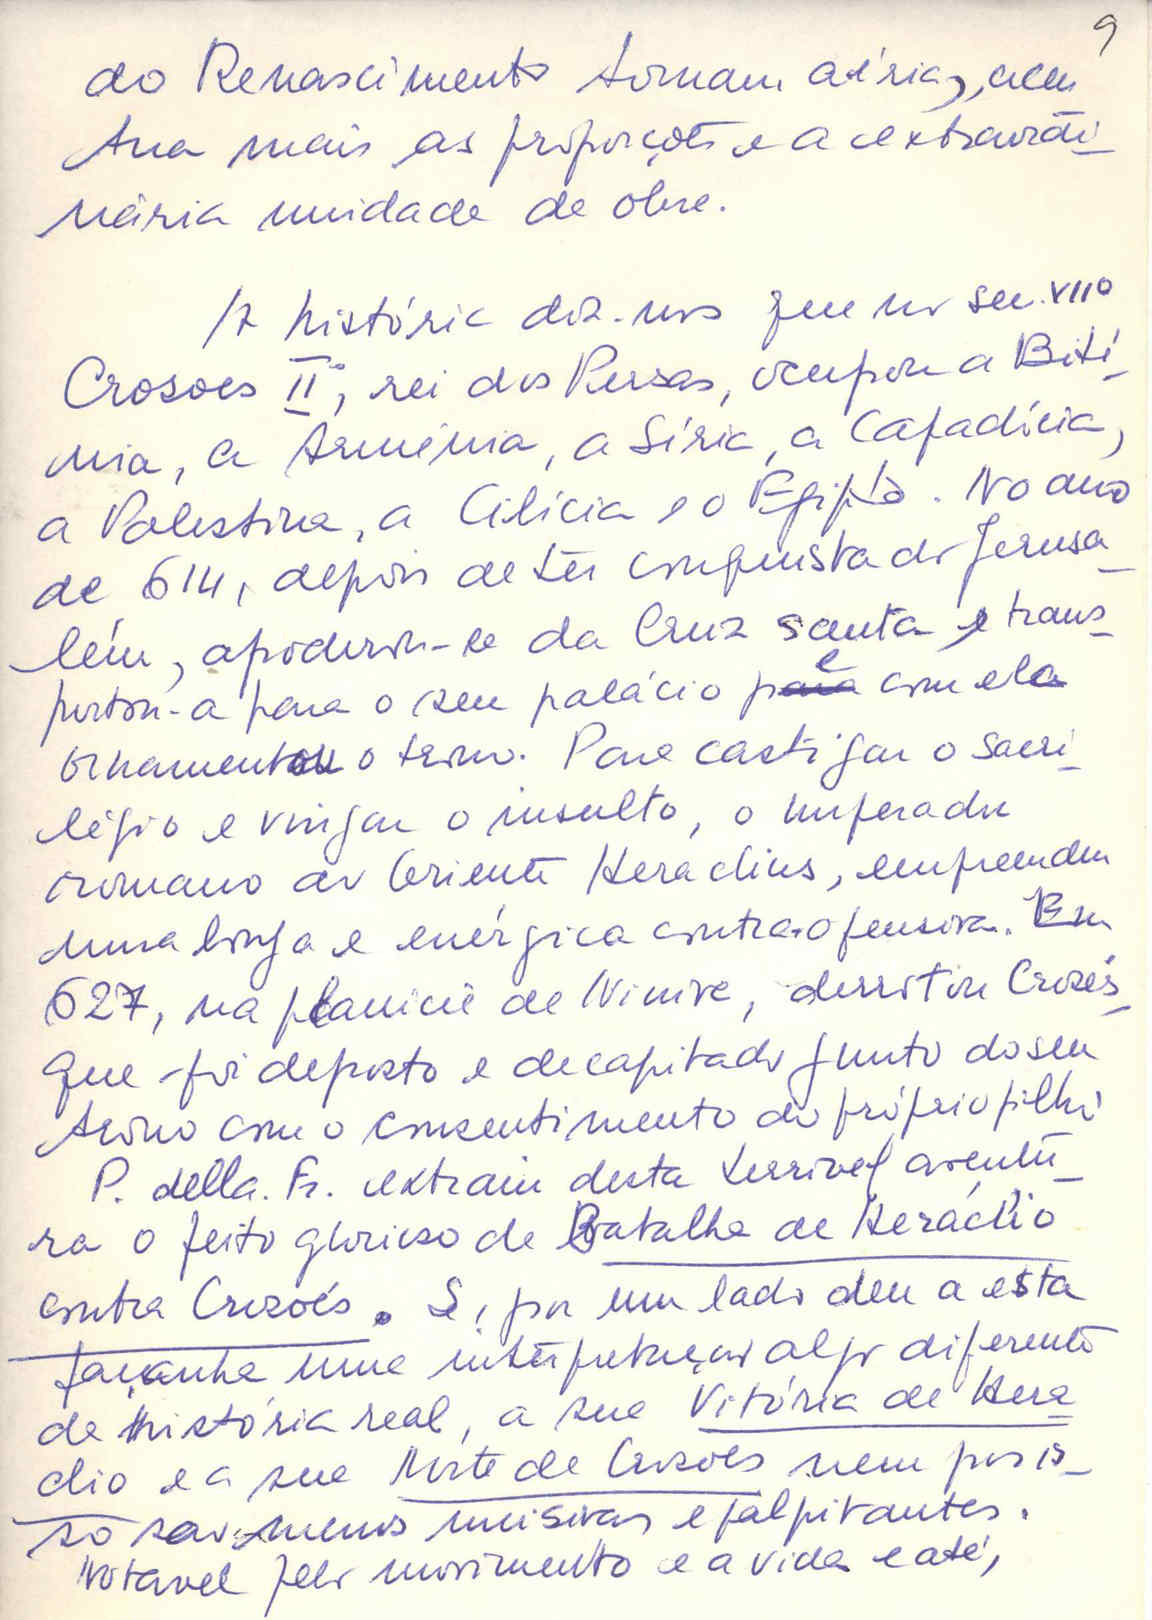 9
do Renascimento tornam aéria, acen
tua mais as proporções e a extraordi-
nária unidade da obra.
A história diz-nos que no sec. VIIº
Crosoes II, rei dos Persas, ocupou a Bití-
nia, a Arménia, a Síria, a Capadócia,
a Palestina, a Cilícia e o Egipto. No ano
de 614, depois de ter conquistado Jerusa-
lém, apoderou-se da Cruz santa e trans-
portou-a para o seu palácio para e com ela
ornamentou o trono. Para castigar o sacri-
légio e vingar o insulto, o imperador
romano do Oriente Heraclius, empreendeu
uma longa e enérgica contra-ofensiva. Em
627, na planície de Ninive, derrotou Crozés
que foi deposto e decapitado junto do seu
trono com o consentimento do próprio filho
P. della. Fr. extraiu desta terrivel aventu-
ra o feito glorioso da Batalha de Heráclio
contra Crozoés. Se, por um lado deu a esta
façanha uma interpretação algo diferente
da história real, a sua Vitória de Herá
clio e a sua Morte de Crosoés nem por is-
so são menos incisivas e palpitantes.
Notavel pelo movimento e a vida e até,